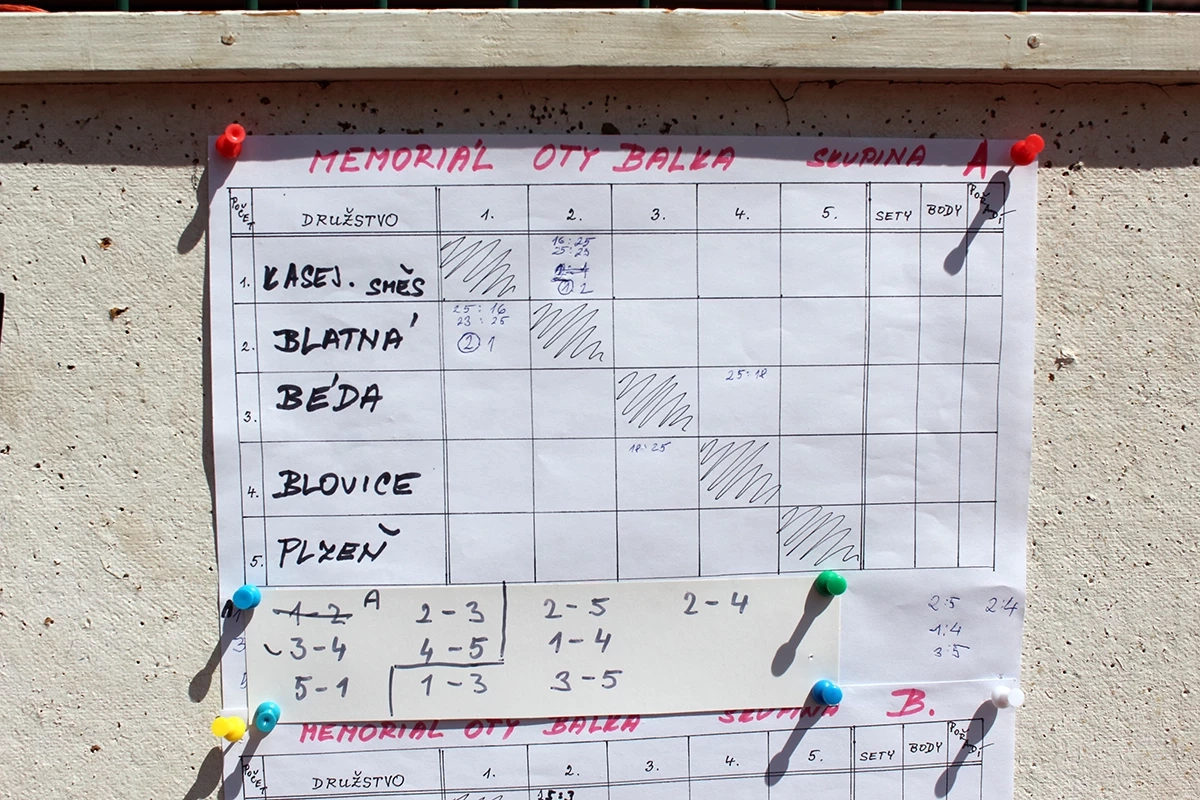 MEMORIÁL OTY BALKA SKUPINA A
POČET DRUŽSTVO 1. 2. 3. 4. 5. SETY BODY POŘADÍ
16:25
25:23
1. KASEJ. SMĚS 1 2
25:16
23:25
2. BLATNÁ 2 1
3. BÉDA 25:18
18:25
4. BLOVICE
5. PLZEŇ
1-2 A 2-3 2-5 2-4 2:5 2:4
3-4 4-5 1-4 1:4
5-1 1-3 3-5 3:5
MEMORIAL OTY BALKA SKUPINA B.
POČET DRUŽSTVO 1. 2. 3. 4. 5. SETY BODY POŘADÍ